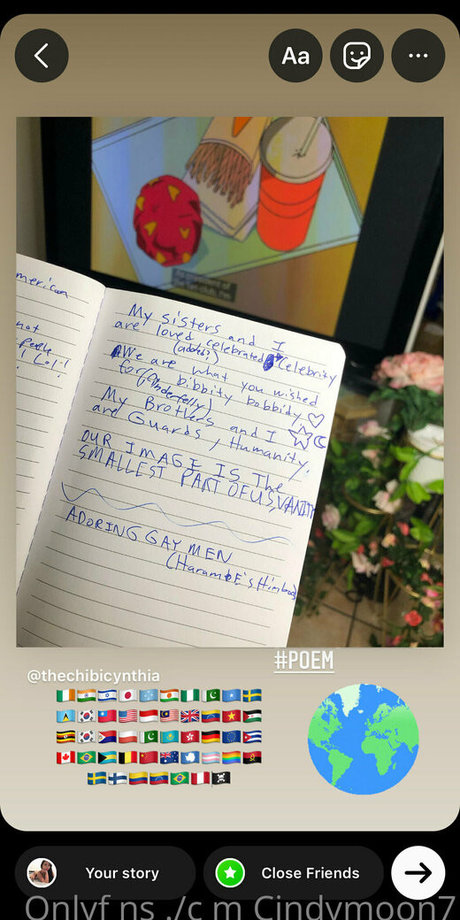 Aa
merican
not
My sisters and I
are loved, celebrated Celebrity
(adored?)
We are what you wished
for, bibbity bobbidy
My Brothers and I
are Guards / Humanity.
OUR IMAGE IS THE
SMALLEST PART OF US, VANITY
ADORING GAY MEN
(HarambE's Himbos)
#POEM
@thechibicynthia
Your story
Close Friends
Onlyf ns ./c m Cindymoon7